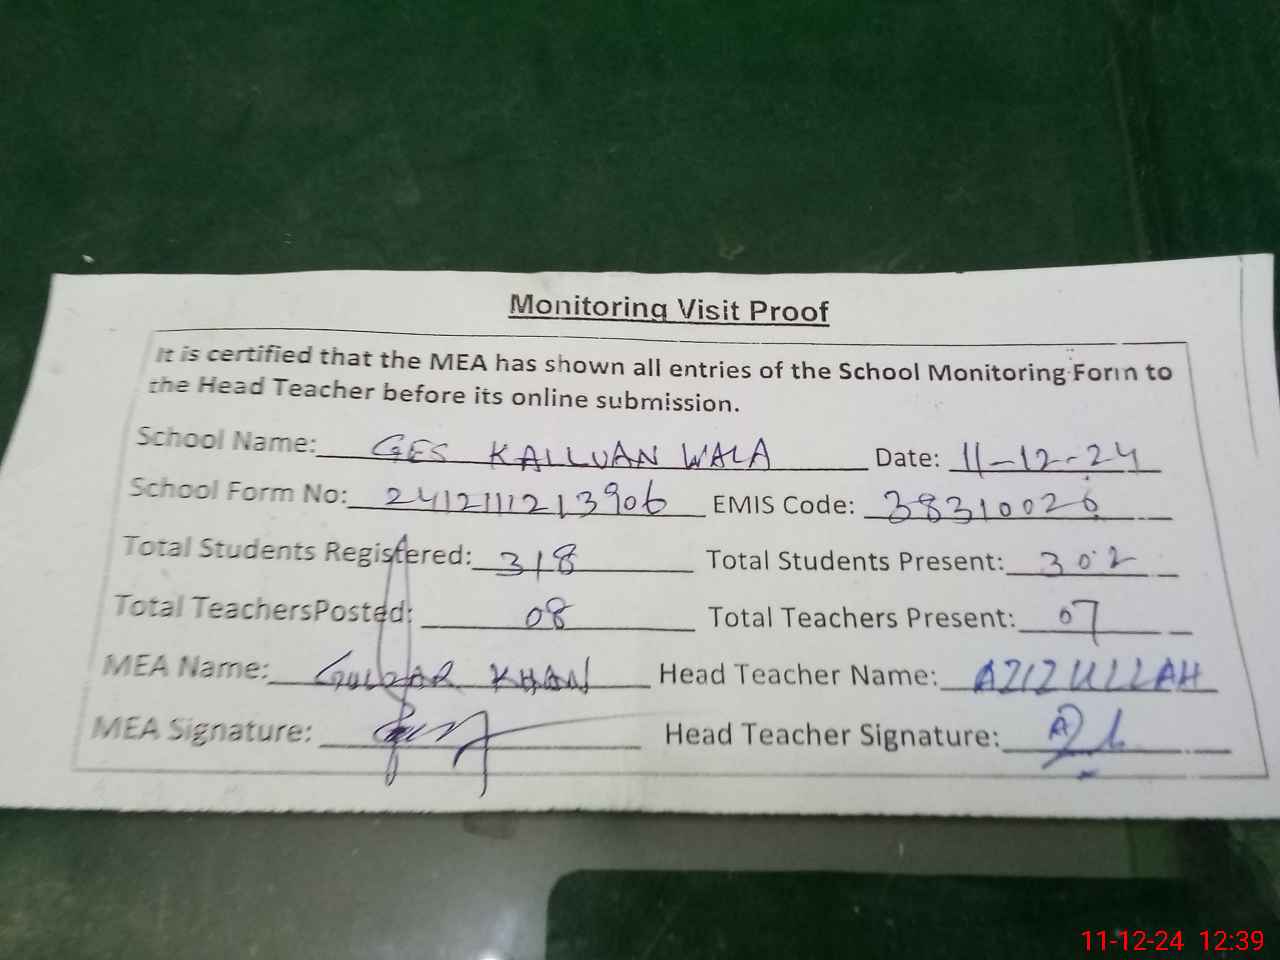 Monitoring Visit Proof
It is certified that the MEA has shown all entries of the School Monitoring Form to
the Head Teacher before its online submission.
School Name: GES KALLUAN WALA Date: 11-12-24
School Form No: 2412111213906 EMIS Code: 38310026
Total Students Registered: 318 Total Students Present: 302
Total TeachersPosted: 08 Total Teachers Present: 07
MEA Name: GULZAR KHAN Head Teacher Name: AZIZULLAH
MEA Signature: Head Teacher Signature:
11-12-24 12:39